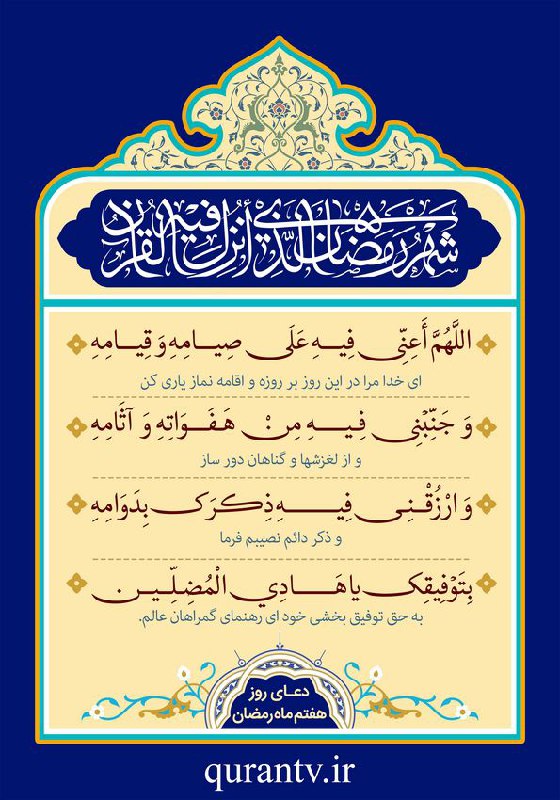 شَهْرُ رَمَضَانَ الَّذِي أُنْزِلَ فِيهِ الْقُرْآنُ
اللَّهُمَّ أَعِنِّي فِيهِ عَلَى صِيَامِهِ وَ قِيَامِهِ
ای خدا مرا در این روز بر روزه و اقامه نماز یاری کن
وَ جَنِّبْنِي فِيهِ مِنْ هَفَوَاتِهِ وَ آثَامِهِ
و از لغزشها و گناهان دور ساز
وَ ارْزُقْنِي فِيهِ ذِكْرَكَ بِدَوَامِهِ
و ذکر دائم نصیبم فرما
بِتَوْفِيقِكَ يا هَادِيَ الْمُضِلِّينَ
به حق توفیق بخشی خود ای رهنمای گمراهان عالم.
دعای روز
هفتم ماه رمضان
qurantv.ir